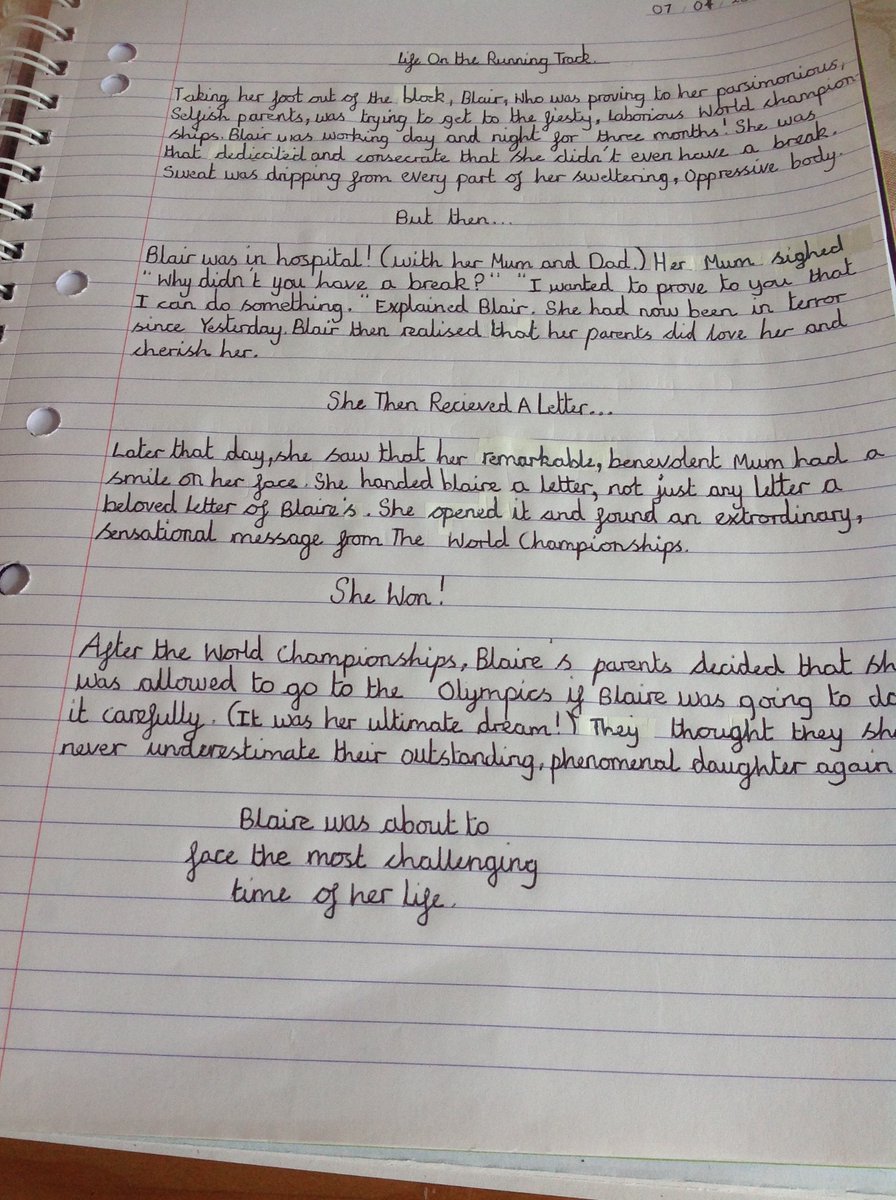 07 / 04 /
Life On the Running Track.
Taking her foot out of the block, Blair, Who was proving to her parsimonious,
Selfish parents, was trying to get to the fiesty, laborious World champion-
ships. Blair was working day and night for three months! She was
that dedicited and consecrate that she didn't even have a break.
Sweat was dripping from every part of her sweltering, Oppressive body.
But then...
Blair was in hospital! (with her Mum and Dad.) Her Mum sighed
"Why didn't you have a break?" "I wanted to prove to you that
I can do something." Explained Blair. She had now been in terror
since Yesterday. Blair then realised that her parents did love her and
cherish her.
She Then Recieved A Letter...
Later that day, she saw that her remarkable, benevolent Mum had a
smile on her face. She handed blaire a letter, not just any letter a
beloved letter of Blaire's. She opened it and found an extrordinary,
sensational message from The World Championships.
She Won!
After the World Championships, Blaire's parents decided that sh
was allowed to go to the Olympics if Blaire was going to do
it carefully. (It was her ultimate dream!) They thought they sh
never underestimate their outstanding, phenomenal daughter again
Blaire was about to
face the most challenging
time of her life.